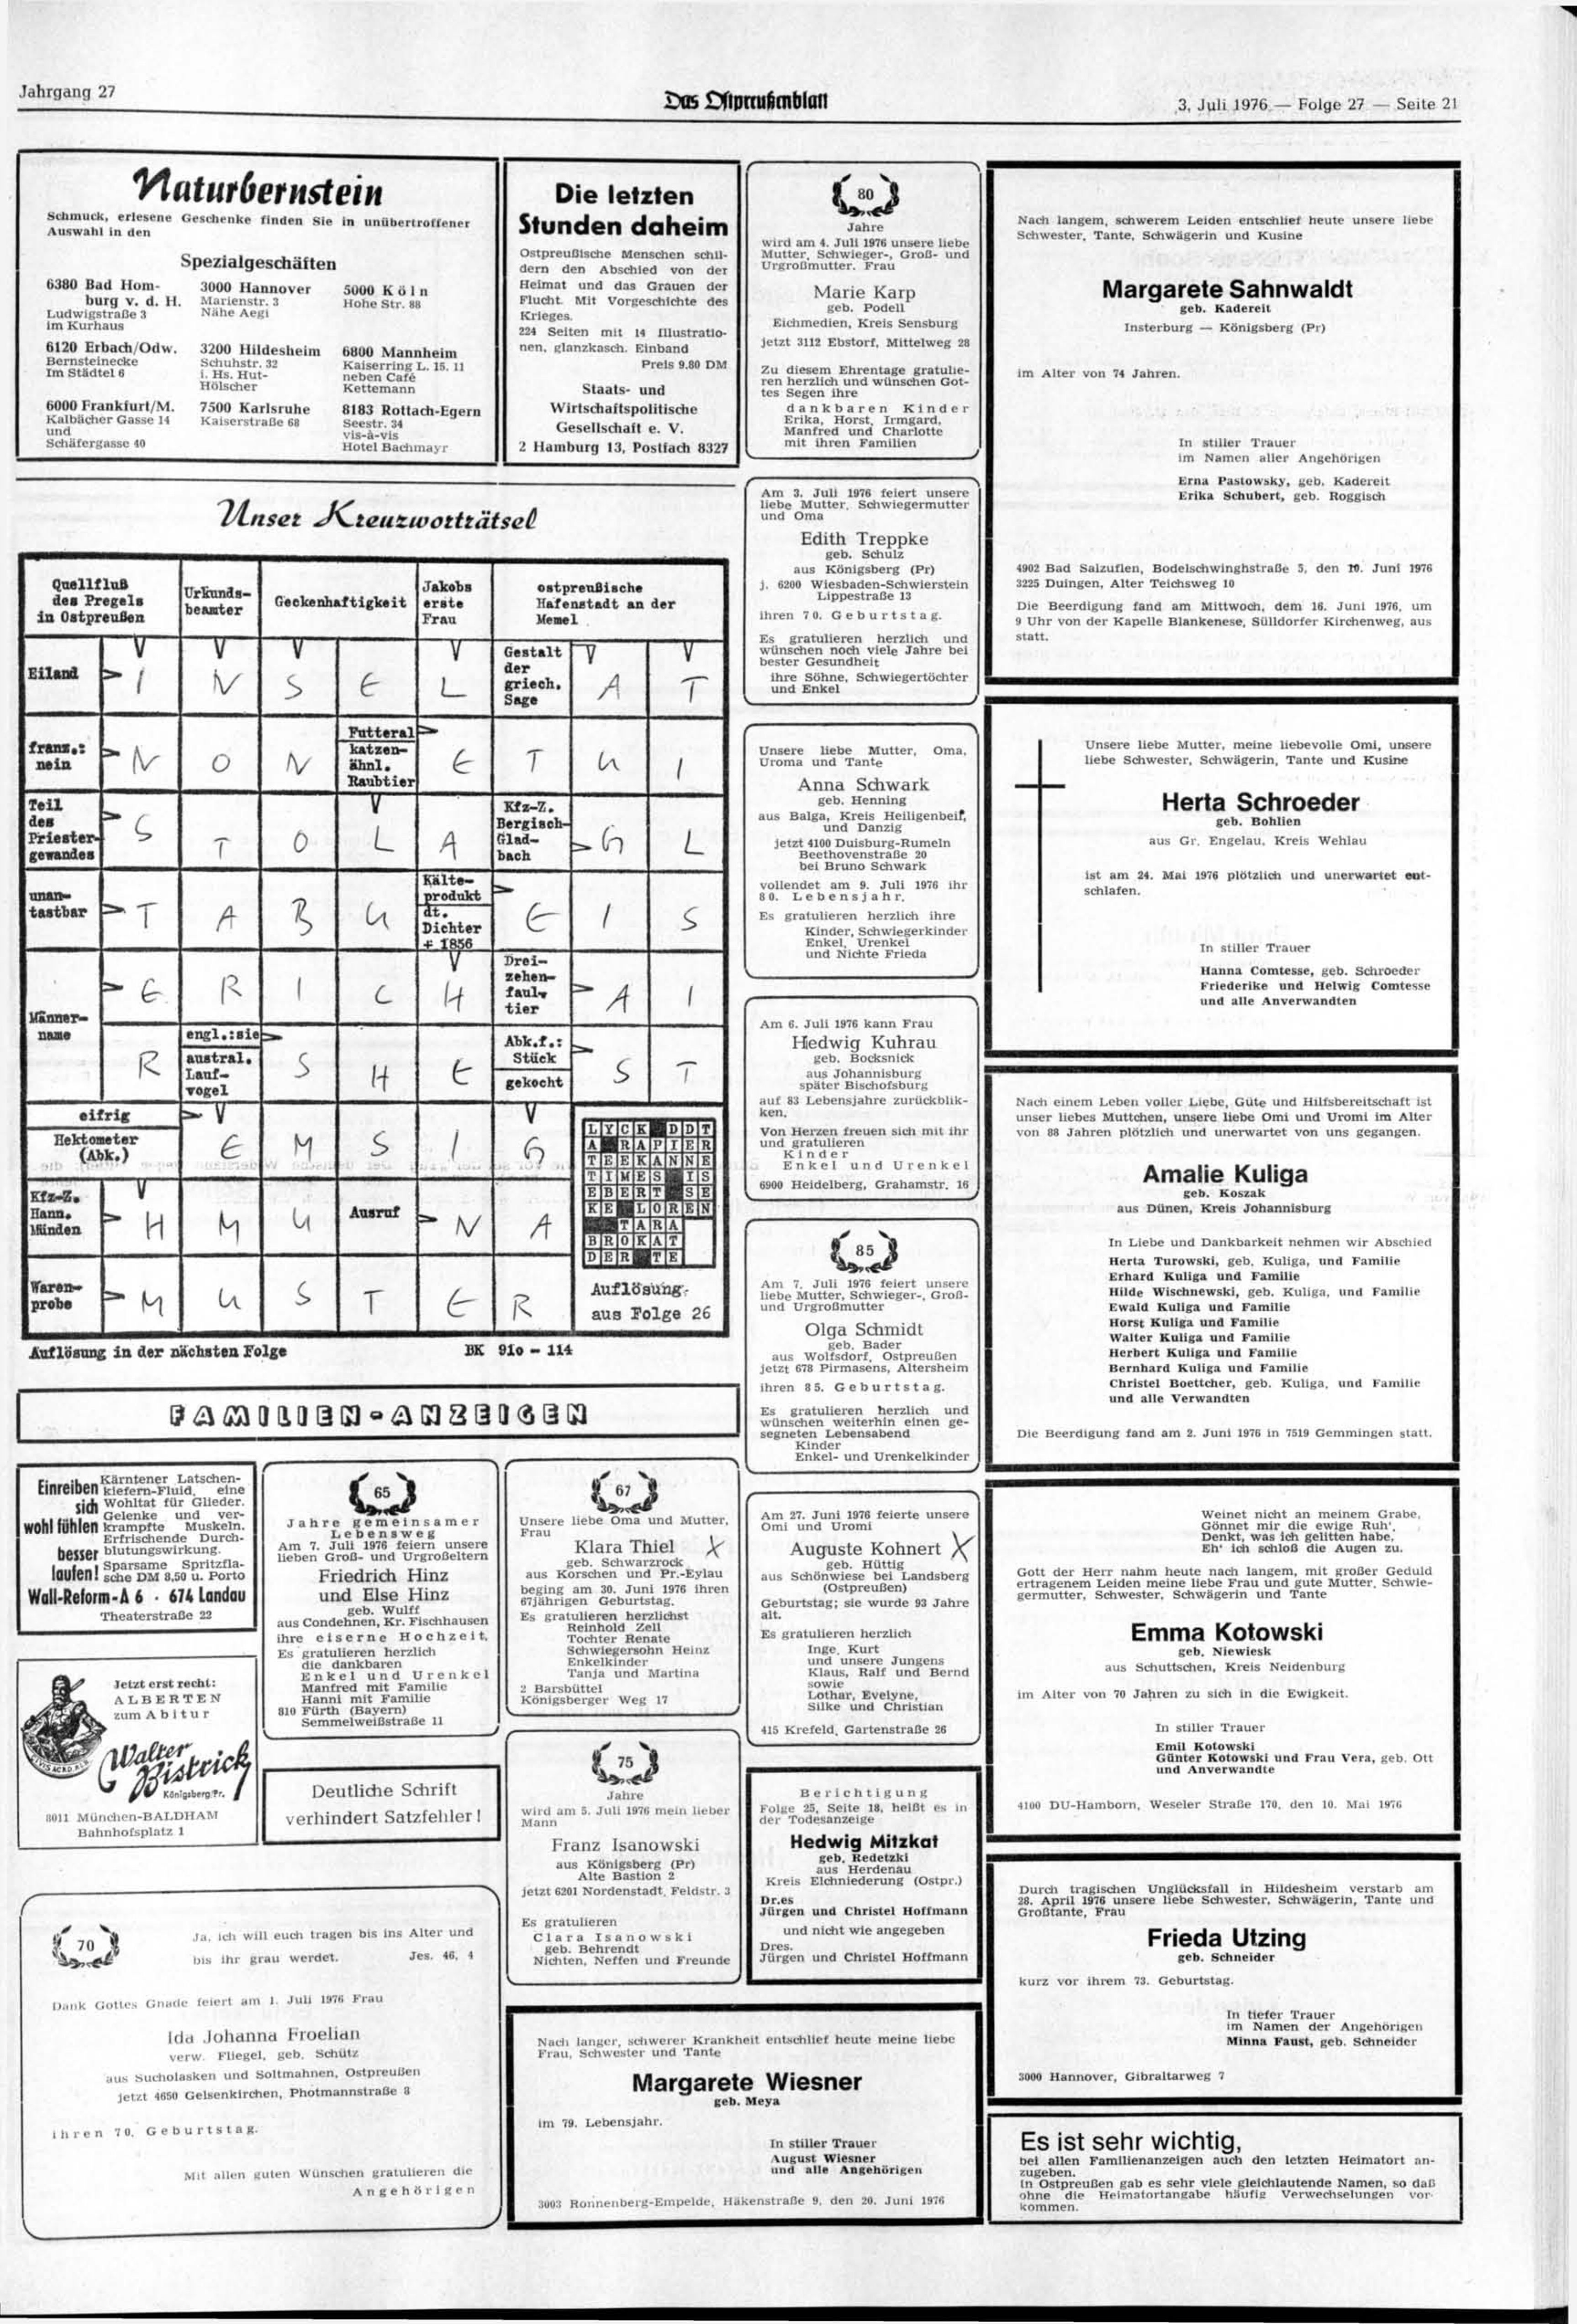 Jahrgang 27
Das Ostpreußenblatt
3. Juli 1976 — Folge 27 — Seite 21
Naturbernstein
Schmuck, erlesene Geschenke finden Sie in unübertroffener
Auswahl in den
Spezialgeschäften
6380 Bad Hom-
burg v. d. H.
Ludwigstraße 3
im Kurhaus
3000 Hannover
Marienstr. 3
Nähe Aegi
5000 Köln
Hohe Str. 88
6120 Erbach/Odw.
Bernsteinecke
Im Städtel 6
3200 Hildesheim
Schuhstr. 32
i. Hs. Hut-
Hölscher
6800 Mannheim
Kaiserring L. 15. 11
neben Café
Kettemann
6000 Frankfurt/M.
Kalbächer Gasse 14
und
Schäfergasse 40
7500 Karlsruhe
Kaiserstraße 68
8183 Rottach-Egern
Seestr. 34
vis-à-vis
Hotel Bachmayr
Die letzten
Stunden daheim
Ostpreußische Menschen schil-
dern den Abschied von der
Heimat und das Grauen der
Flucht. Mit Vorgeschichte des
Krieges.
224 Seiten mit 14 Illustratio-
nen, glanzkasch. Einband
Preis 9,80 DM
Staats- und
Wirtschaftspolitische
Gesellschaft e. V.
2 Hamburg 13, Postfach 8327
Unser Kreuzworträtsel
Quellfluß
des Pregels
in Ostpreußen
Urkunds-
beamter
Geckenhaftigkeit
Jakobs
erste
Frau
ostpreußische
Hafenstadt an der
Memel
Eiland
I N S E L
Gestalt
der
griech.
Sage
A T
franz.:
nein
N O N
Futteral
katzen-
ähnl.
Raubtier
E T U I
Teil
des
Priester-
gewandes
S T O L A
Kfz-Z.
Bergisch-
Glad-
bach
G L
unan-
tastbar
T A B U
Kälte-
produkt
dt.
Dichter
+ 1856
E I S
Männer-
name
E R I C H
Drei-
zehen-
faul-
tier
A I
R
engl.:sie
austral.
Lauf-
vogel
S H E
Abk.f.:
Stück
gekocht
S T
eifrig
Hektometer
(Abk.)
E M S I G
Kfz-Z.
Hann.
Münden
H M U
Ausruf
N A
Waren-
probe
M U S T E R
LYCK DDT
A RAPIER
TEEKANNE
TIMES IS
EBERT SE
KE LOREN
TARA
BROKAT
DER TE
Auflösung
aus Folge 26
Auflösung in der nächsten Folge
BK 910 - 114
FAMILIEN-ANZEIGEN
Einreiben
sich
wohl fühlen
besser
laufen!
Kärntener Latschen-
kiefern-Fluid, eine
Wohltat für Glieder.
Gelenke und ver-
krampfte Muskeln.
Erfrischende Durch-
blutungswirkung.
Sparsame Spritzfla-
sche DM 8,50 u. Porto
Wall-Reform-A 6 · 674 Landau
Theaterstraße 22
Jetzt erst recht:
ALBERTEN
zum Abitur
Walter
Bistrick
Königsberg/Pr.
8011 München-BALDHAM
Bahnhofsplatz 1
65
Jahre gemeinsamer
Lebensweg
Am 7. Juli 1976 feiern unsere
lieben Groß- und Urgroßeltern
Friedrich Hinz
und Else Hinz
geb. Wulff
aus Condehnen, Kr. Fischhausen
ihre eiserne Hochzeit.
Es gratulieren herzlich
die dankbaren
Enkel und Urenkel
Manfred mit Familie
Hanni mit Familie
810 Fürth (Bayern)
Semmelweißstraße 11
Deutliche Schrift
verhindert Satzfehler!
70
Ja, ich will euch tragen bis ins Alter und
bis ihr grau werdet. Jes. 46, 4
Dank Gottes Gnade feiert am 1. Juli 1976 Frau
Ida Johanna Froelian
verw. Fliegel, geb. Schütz
aus Sucholasken und Soltmahnen, Ostpreußen
jetzt 4650 Gelsenkirchen, Photmannstraße 8
ihren 70. Geburtstag.
Mit allen guten Wünschen gratulieren die
Angehörigen
67
Unsere liebe Oma und Mutter,
Frau
Klara Thiel X
geb. Schwarzrock
aus Korschen und Pr.-Eylau
beging am 30. Juni 1976 ihren
67jährigen Geburtstag.
Es gratulieren herzlichst
Reinhold Zell
Tochter Renate
Schwiegersohn Heinz
Enkelkinder
Tanja und Martina
2 Barsbüttel
Königsberger Weg 17
75
Jahre
wird am 5. Juli 1976 mein lieber
Mann
Franz Isanowski
aus Königsberg (Pr)
Alte Bastion 2
jetzt 6201 Nordenstadt, Feldstr. 3
Es gratulieren
Clara Isanowski
geb. Behrendt
Nichten, Neffen und Freunde
Nach langer, schwerer Krankheit entschlief heute meine liebe
Frau, Schwester und Tante
Margarete Wiesner
geb. Meya
im 79. Lebensjahr.
In stiller Trauer
August Wiesner
und alle Angehörigen
3003 Ronnenberg-Empelde, Häkenstraße 9, den 20. Juni 1976
80
Jahre
wird am 4. Juli 1976 unsere liebe
Mutter, Schwieger-, Groß- und
Urgroßmutter. Frau
Marie Karp
geb. Podell
Eichmedien, Kreis Sensburg
jetzt 3112 Ebstorf, Mittelweg 28
Zu diesem Ehrentage gratulie-
ren herzlich und wünschen Got-
tes Segen ihre
dankbaren Kinder
Erika, Horst, Irmgard,
Manfred und Charlotte
mit ihren Familien
Am 3. Juli 1976 feiert unsere
liebe Mutter, Schwiegermutter
und Oma
Edith Treppke
geb. Schulz
aus Königsberg (Pr)
j. 6200 Wiesbaden-Schwierstein
Lippestraße 13
ihren 70. Geburtstag.
Es gratulieren herzlich und
wünschen noch viele Jahre bei
bester Gesundheit
ihre Söhne, Schwiegertöchter
und Enkel
Unsere liebe Mutter, Oma,
Uroma und Tante
Anna Schwark
geb. Henning
aus Balga, Kreis Heiligenbeil,
und Danzig
jetzt 4100 Duisburg-Rumeln
Beethovenstraße 20
bei Bruno Schwark
vollendet am 9. Juli 1976 ihr
80. Lebensjahr.
Es gratulieren herzlich ihre
Kinder, Schwiegerkinder
Enkel, Urenkel
und Nichte Frieda
Am 6. Juli 1976 kann Frau
Hedwig Kuhrau
geb. Bocksnick
aus Johannisburg
später Bischofsburg
auf 83 Lebensjahre zurückblik-
ken.
Von Herzen freuen sich mit ihr
und gratulieren
Kinder
Enkel und Urenkel
6900 Heidelberg, Grahamstr. 16
85
Am 7. Juli 1976 feiert unsere
liebe Mutter, Schwieger-, Groß-
und Urgroßmutter
Olga Schmidt
geb. Bader
aus Wolfsdorf, Ostpreußen
jetzt 678 Pirmasens, Altersheim
ihren 85. Geburtstag.
Es gratulieren herzlich und
wünschen weiterhin einen ge-
segneten Lebensabend
Kinder
Enkel- und Urenkelkinder
Am 27. Juni 1976 feierte unsere
Omi und Uromi
Auguste Kohnert X
geb. Hüttig
aus Schönwiese bei Landsberg
(Ostpreußen)
Geburtstag; sie wurde 93 Jahre
alt.
Es gratulieren herzlich
Inge, Kurt
und unsere Jungens
Klaus, Ralf und Bernd
sowie
Lothar, Evelyne,
Silke und Christian
415 Krefeld, Gartenstraße 26
Berichtigung
Folge 25, Seite 18, heißt es in
der Todesanzeige
Hedwig Mitzkat
geb. Redetzki
aus Herdenau
Kreis Elchniederung (Ostpr.)
Dr.es
Jürgen und Christel Hoffmann
und nicht wie angegeben
Dres.
Jürgen und Christel Hoffmann
Nach langem, schwerem Leiden entschlief heute unsere liebe
Schwester, Tante, Schwägerin und Kusine
Margarete Sahnwaldt
geb. Kadereit
Insterburg — Königsberg (Pr)
im Alter von 74 Jahren.
In stiller Trauer
im Namen aller Angehörigen
Erna Pastowsky, geb. Kadereit
Erika Schubert, geb. Roggisch
4902 Bad Salzuflen, Bodelschwinghstraße 5, den 10. Juni 1976
3225 Duingen, Alter Teichsweg 10
Die Beerdigung fand am Mittwoch, dem 16. Juni 1976, um
9 Uhr von der Kapelle Blankenese, Sülldorfer Kirchenweg, aus
statt.
Unsere liebe Mutter, meine liebevolle Omi, unsere
liebe Schwester, Schwägerin, Tante und Kusine
Herta Schroeder
geb. Bohlien
aus Gr. Engelau, Kreis Wehlau
ist am 24. Mai 1976 plötzlich und unerwartet ent-
schlafen.
In stiller Trauer
Hanna Comtesse, geb. Schroeder
Friederike und Helwig Comtesse
und alle Anverwandten
Nach einem Leben voller Liebe, Güte und Hilfsbereitschaft ist
unser liebes Muttchen, unsere liebe Omi und Uromi im Alter
von 88 Jahren plötzlich und unerwartet von uns gegangen.
Amalie Kuliga
geb. Koszak
aus Dünen, Kreis Johannisburg
In Liebe und Dankbarkeit nehmen wir Abschied
Herta Turowski, geb. Kuliga, und Familie
Erhard Kuliga und Familie
Hilde Wischnewski, geb. Kuliga, und Familie
Ewald Kuliga und Familie
Horst Kuliga und Familie
Walter Kuliga und Familie
Herbert Kuliga und Familie
Bernhard Kuliga und Familie
Christel Boettcher, geb. Kuliga, und Familie
und alle Verwandten
Die Beerdigung fand am 2. Juni 1976 in 7519 Gemmingen statt.
Weinet nicht an meinem Grabe,
Gönnet mir die ewige Ruh',
Denkt, was ich gelitten habe,
Eh' ich schloß die Augen zu.
Gott der Herr nahm heute nach langem, mit großer Geduld
ertragenem Leiden meine liebe Frau und gute Mutter, Schwie-
germutter, Schwester, Schwägerin und Tante
Emma Kotowski
geb. Niewiesk
aus Schuttschen, Kreis Neidenburg
im Alter von 70 Jahren zu sich in die Ewigkeit.
In stiller Trauer
Emil Kotowski
Günter Kotowski und Frau Vera, geb. Ott
und Anverwandte
4100 DU-Hamborn, Weseler Straße 170, den 10. Mai 1976
Durch tragischen Unglücksfall in Hildesheim verstarb am
28. April 1976 unsere liebe Schwester, Schwägerin, Tante und
Großtante, Frau
Frieda Utzing
geb. Schneider
kurz vor ihrem 73. Geburtstag.
In tiefer Trauer
im Namen der Angehörigen
Minna Faust, geb. Schneider
3000 Hannover, Gibraltarweg 7
Es ist sehr wichtig,
bei allen Familienanzeigen auch den letzten Heimatort an-
zugeben.
In Ostpreußen gab es sehr viele gleichlautende Namen, so daß
ohne die Heimatortangabe häufig Verwechselungen vor-
kommen.